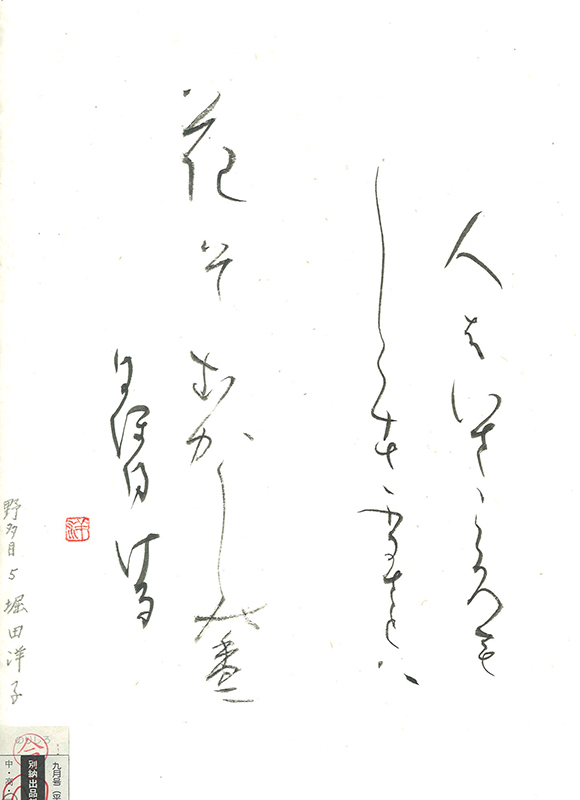 人はいさこゝろも
しらすふるさとハ
花そむかしの香に
にほひける
洋
野多目5 堀田洋子
九月号
別納出品
中・高